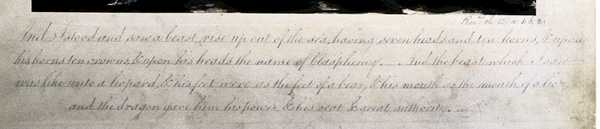 Rev. ch. 13. v. 1 & 2.
And I stood and saw a beast rise up out of the sea, having seven heads and ten horns, & upon
his horns ten crowns, & upon his heads the name of blasphemy. And the beast which I saw
was like unto a leopard, & his feet were as the feet of a bear, & his mouth as the mouth of a lion,
and the dragon gave him his power & his seat & great authority.